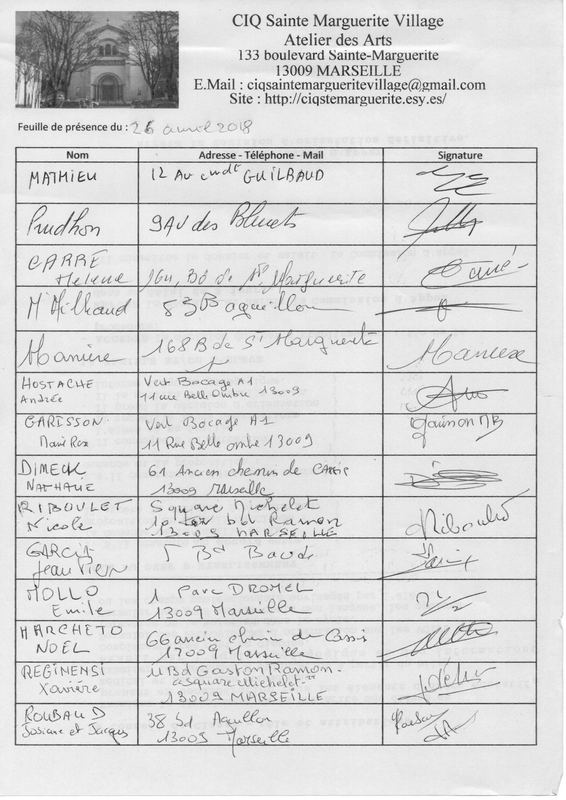 CIQ Sainte Marguerite Village
Atelier des Arts
133 boulevard Sainte-Marguerite
13009 MARSEILLE
E.Mail : ciqsaintemargueritevillage@gmail.com
Site : http://ciqstemarguerite.esy.es/
Feuille de présence du : 26 avril 2018
Nom Adresse - Téléphone - Mail Signature
MATHIEU 12 Av cmdt GUILBAUD
Prudhon 9 AV des Bleuets
CARRÉ
Helene 164, Bd de Ste Marguerite Carré
83 Baqueillou
168 B de St Marguerite
HOSTACHE Vert Bocage A1
Andrée 11 rue Belle Ombre 13009
GARISSON Vert Bocage A1
Marie Rose 11 Rue Belle ombre 13009
DIMECK 61 Ancien chemin de CASSIS
NATHALIE 13009 Marseille
RIBOULET Square Michelet
Nicole bld Ramon
13009 MARSEILLE
GARCIA 5 Bd Baude
Jean Pierre
MOLLO 1 Parc DROMEL
Emile 13009 Marseille
MARCHETO 66 ancien chemin de Cassis
NOËL 13009 Marseille
REGIMENSI 11 Bd Gaston Ramon -
Xavière "Square Michelet"
13009 MARSEILLE
ROUBAUD 38 Bd
Josiane et Jacques 13009 Marseille